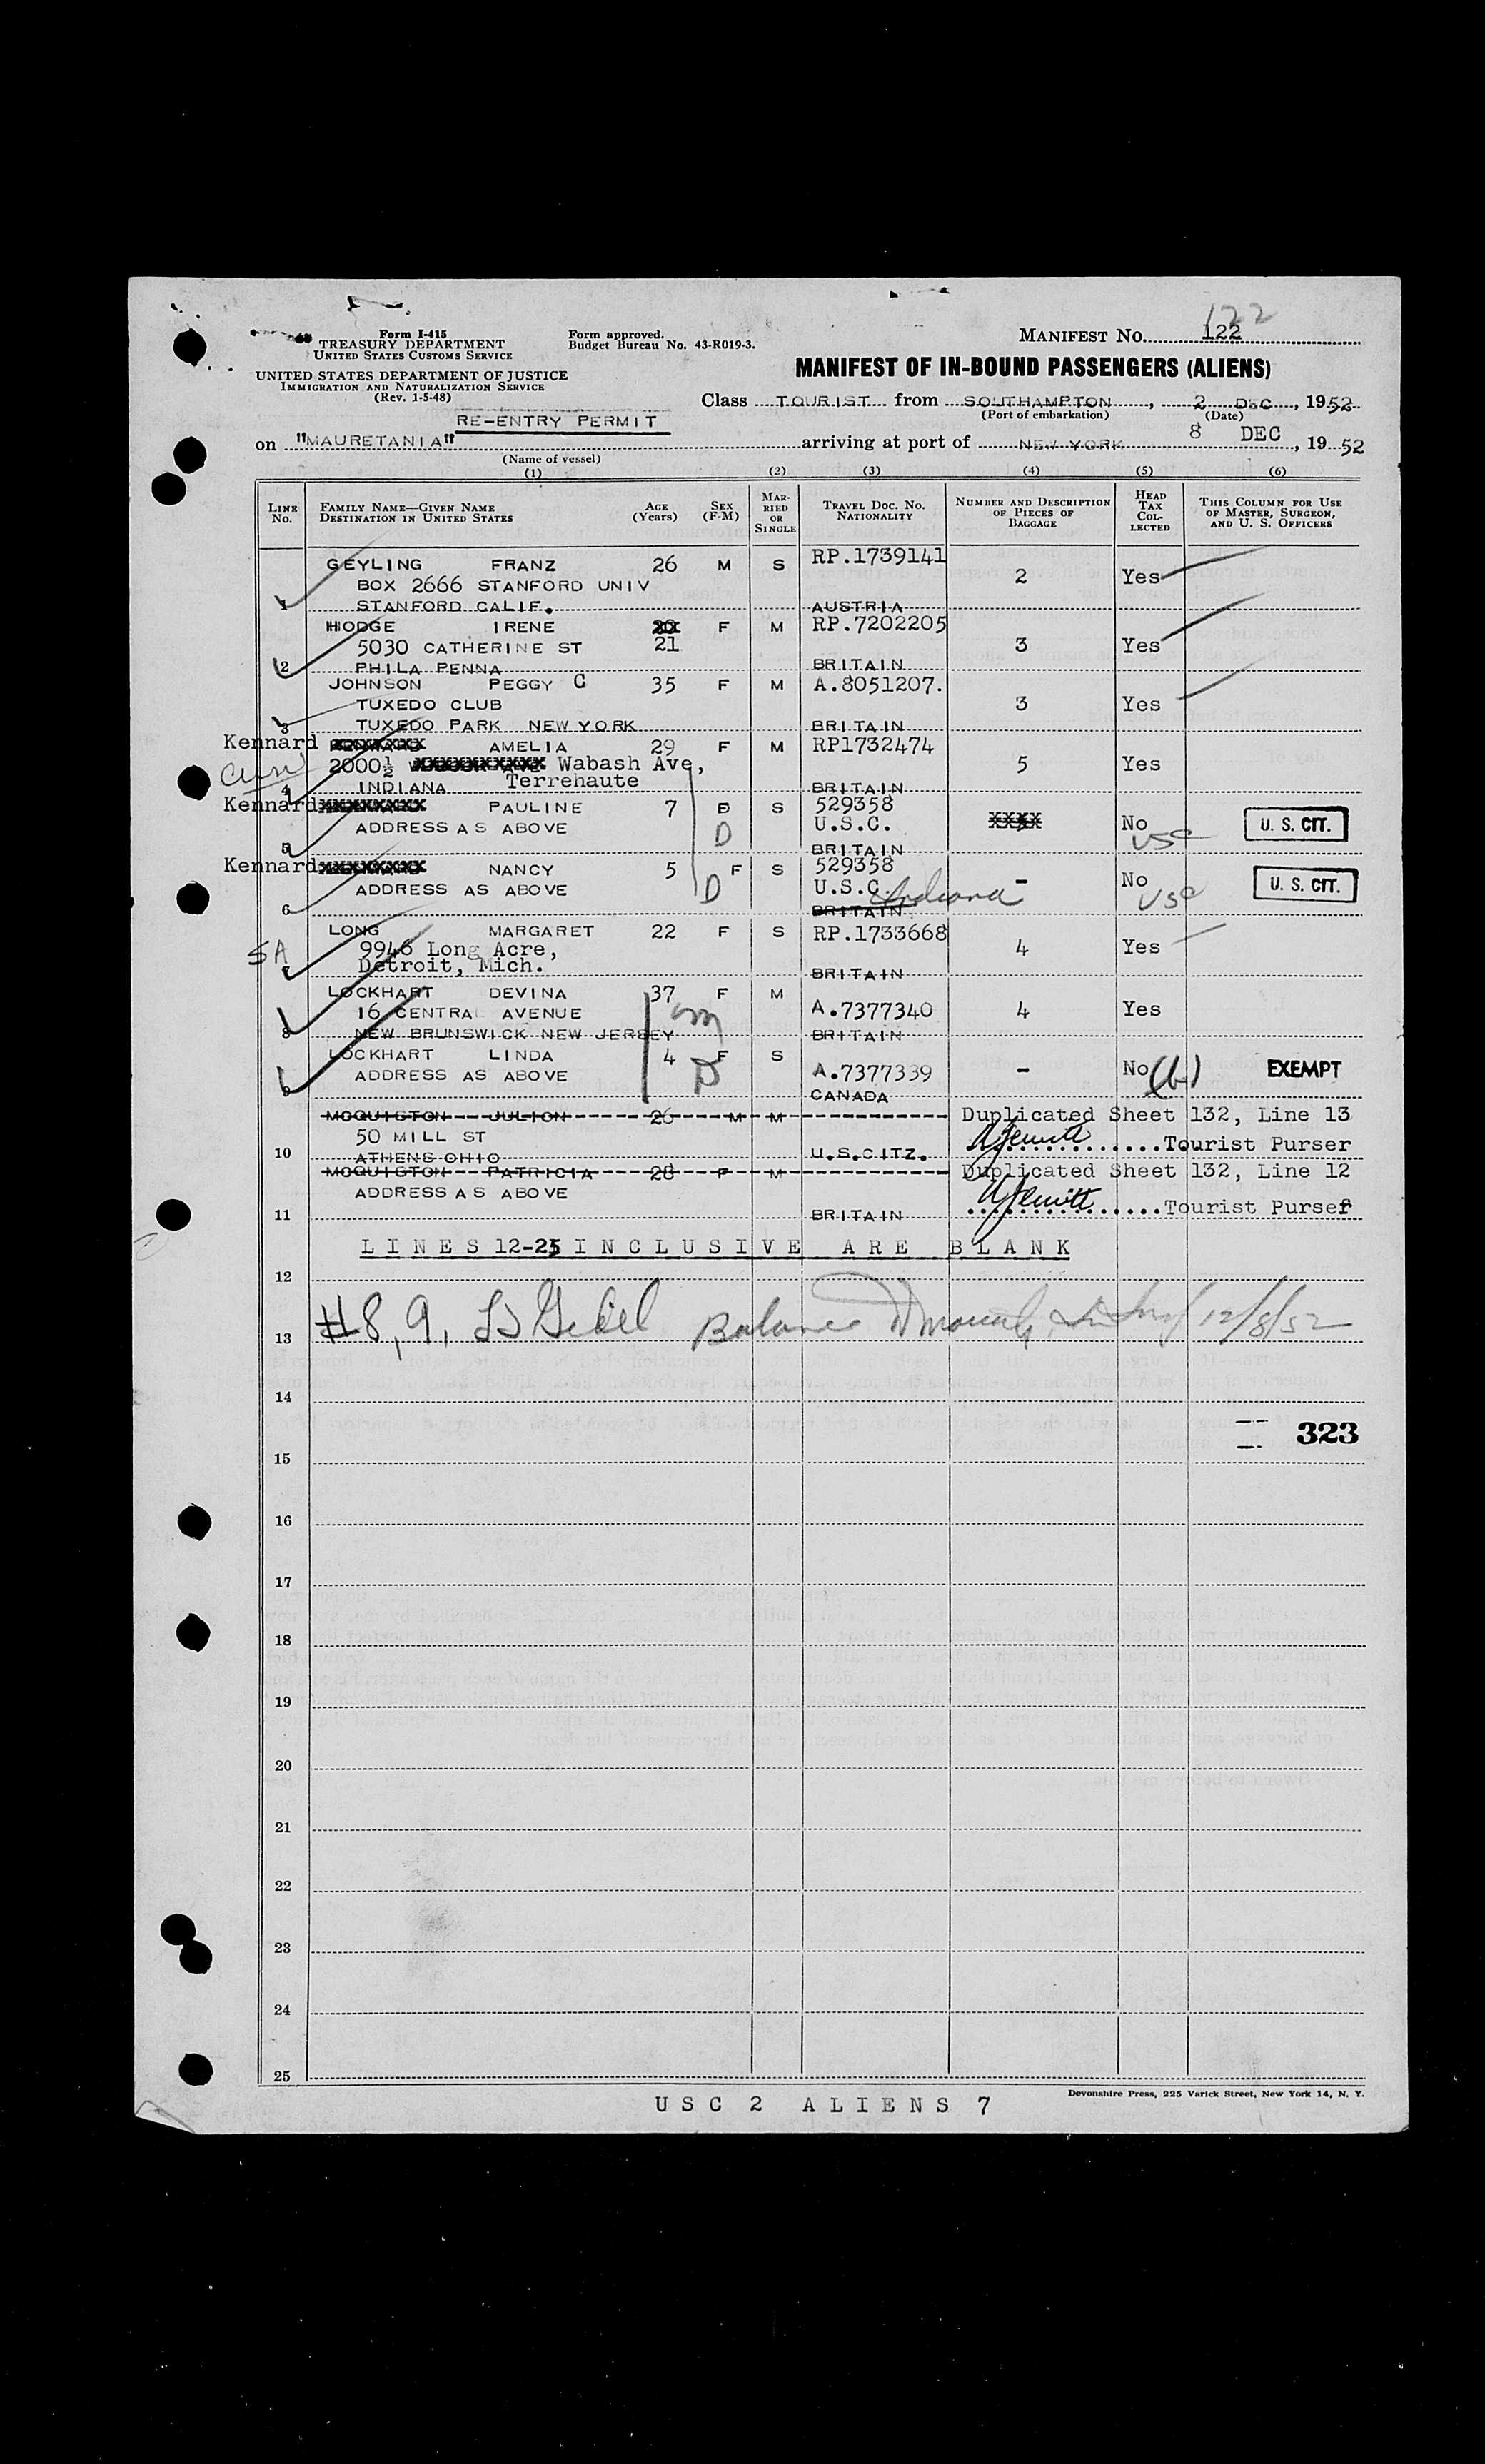 122
Form I-415
TREASURY DEPARTMENT
UNITED STATES CUSTOMS SERVICE
Form approved.
Budget Bureau No. 43-R019-3.
MANIFEST NO. 122
UNITED STATES DEPARTMENT OF JUSTICE
IMMIGRATION AND NATURALIZATION SERVICE
(Rev. 1-5-48)
MANIFEST OF IN-BOUND PASSENGERS (ALIENS)
Class TOURIST from SOUTHAMPTON, 2 DEC, 1952
(Port of embarkation) (Date)
RE-ENTRY PERMIT
on "MAURETANIA" arriving at port of NEW YORK 8 DEC, 1952
(Name of vessel)
(1) (2) (3) (4) (5) (6)
LINE NO. FAMILY NAME—GIVEN NAME DESTINATION IN UNITED STATES AGE (Years) SEX (F-M) MARRIED OR SINGLE TRAVEL DOC. NO. NATIONALITY NUMBER AND DESCRIPTION OF PIECES OF BAGGAGE HEAD TAX COLLECTED THIS COLUMN FOR USE OF MASTER, SURGEON, AND U. S. OFFICERS
GEYLING FRANZ 26 M S RP.1739141
BOX 2666 STANFORD UNIV 2 Yes
1 STANFORD CALIF. AUSTRIA
HODGE IRENE F M RP.7202205
5030 CATHERINE ST 21 3 Yes
2 PHILA PENNA BRITAIN
JOHNSON PEGGY C 35 F M A.8051207.
TUXEDO CLUB 3 Yes
3 TUXEDO PARK NEW YORK BRITAIN
Kennard AMELIA 29 F M RP1732474
2000½ Wabash Ave, 5 Yes
4 INDIANA Terrehaute BRITAIN
Kennard PAULINE 7 S 529358
ADDRESS AS ABOVE D U.S.C. No U. S. CIT.
5 BRITAIN USC
Kennard NANCY 5 F S 529358
ADDRESS AS ABOVE D U.S.C. Indiana - No U. S. CIT.
6 BRITAIN USC
LONG MARGARET 22 F S RP.1733668
SA 9946 Long Acre, 4 Yes
7 Detroit, Mich. BRITAIN
LOCKHART DEVINA 37 F M
16 CENTRAL AVENUE A.7377340 4 Yes
8 NEW BRUNSWICK NEW JERSEY BRITAIN
LOCKHART LINDA 4 F S
ADDRESS AS ABOVE D A.7377339 - No EXEMPT
9 CANADA
MCQUISTON JULION 26 M M Duplicated Sheet 132, Line 13
50 MILL ST Tourist Purser
10 ATHENS OHIO U.S.CITZ.
MCQUISTON PATRICIA 28 F M Duplicated Sheet 132, Line 12
ADDRESS AS ABOVE
11 BRITAIN Tourist Purser
LINES 12-25 INCLUSIVE ARE BLANK
12
13 #8, 9, Balance 12/8/52
14
323
15
16
17
18
19
20
21
22
23
24
25
Devonshire Press, 225 Varick Street, New York 14, N. Y.
USC 2 ALIENS 7